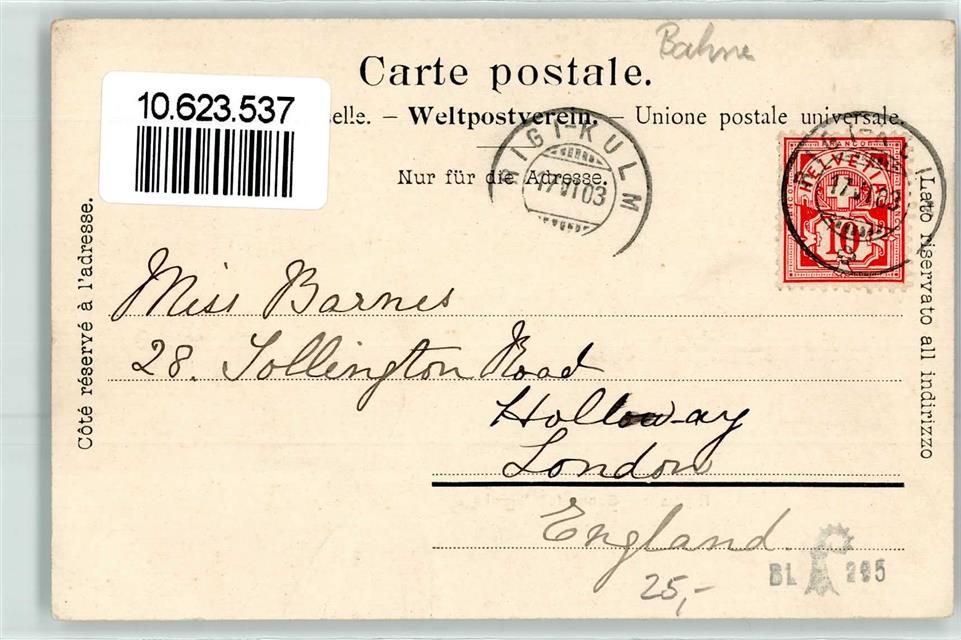 Bahne
Carte postale.
10.623.537
elle. – Weltpostverein. – Unione postale universale.
Nur für die Adresse.
RIGI-KULM
17 VI 03
HELVETIA
FRANCO
17 VI 03
10
Côté réservé à l'adresse.
Lato riservato all indirizzo
Miss Barnes
28. Tollington Road
Holloway
London
England.
25,-
BL 295